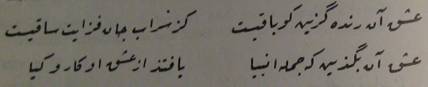 عشق آن زنده گزین کو باقیست    کز شراب جان فزایت ساقیست
عشق آن بگزین که جمله انبیا    یافتند از عشق او کار و کیا